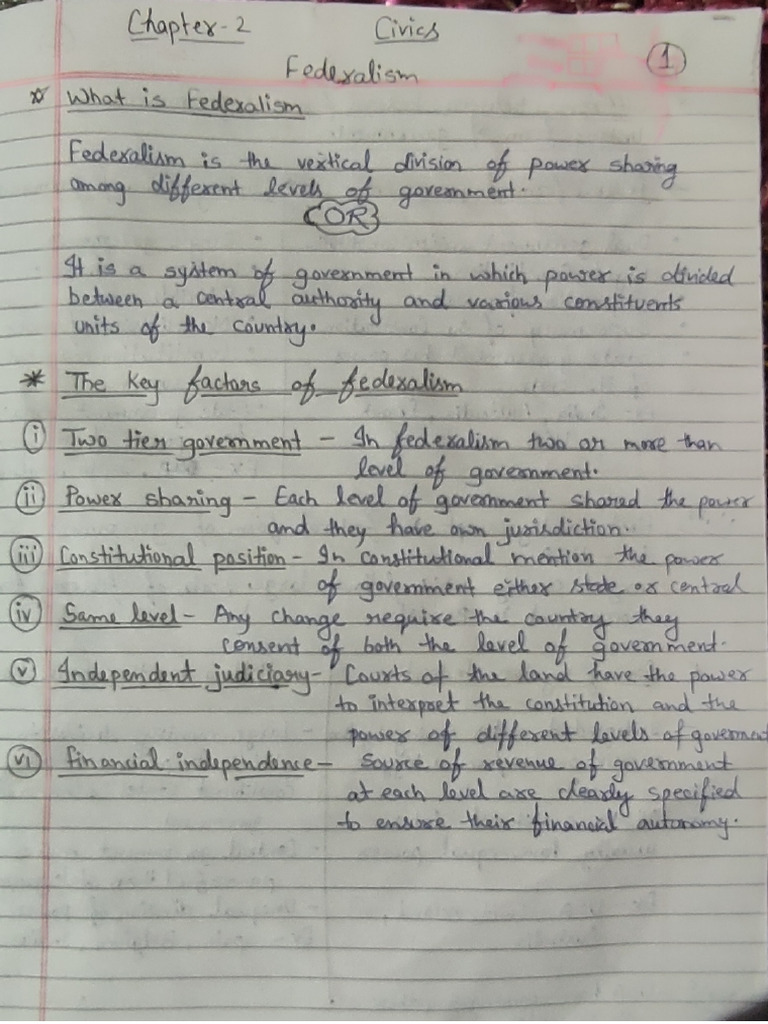 Chapter-2 Civics
Federalism
1
* What is Federalism
Federalism is the vertical division of power sharing
among different levels of government.
OR
It is a system of government in which power is divided
between a central authority and various constituents
units of the country.
* The Key factors of federalism
(i) Two tier government - In federalism two or more than
level of government.
(ii) Power sharing - Each level of government shared the power
and they have own jurisdiction.
(iii) Constitutional position - In constitutional mention the power
of government either state or central
(iv) Same level - Any change require the country they
consent of both the level of government.
(v) Independent judiciary - Courts of the land have the power
to interpret the constitution and the
power of different levels of government
(vi) financial independence - Source of revenue of government
at each level are clearly specified
to ensure their financial autonomy.